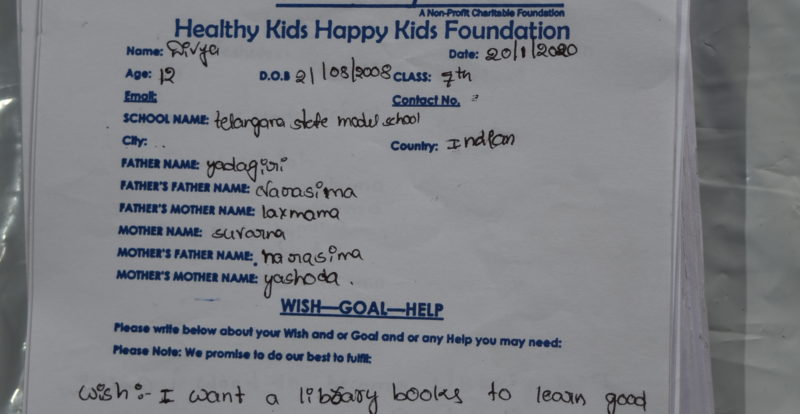 A Non-Profit Charitable Foundation
Healthy Kids Happy Kids Foundation
Name: Divya Date: 20/1/2020
Age: 12 D.O.B 21/08/2008 CLASS: 7th
Email: Contact No.
SCHOOL NAME: telangara state model school
City: .. Country: Indian
FATHER NAME: yadagiri
FATHER'S FATHER NAME: Narasima
FATHER'S MOTHER NAME: laxmama
MOTHER NAME: suvarna
MOTHER'S FATHER NAME: narasima
MOTHER'S MOTHER NAME: yashoda.
WISH—GOAL—HELP
Please write below about your Wish and or Goal and or any Help you may need:
Please Note: We promise to do our best to fulfil:
wish:- I want a library books to learn good